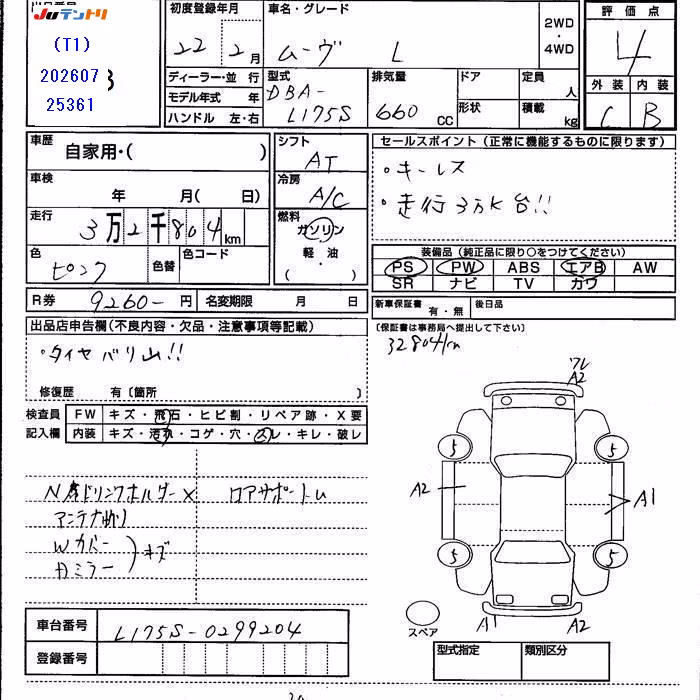 JUテントリ
(T1)
202607
25361
初度登録年月
22年 2月
車名・グレード
ムーヴ L
2WD
・
4WD
評価点
4
外装 内装
C B
ディーラー・並 行
モデル年式 年
ハンドル 左・右
型式
DBA-
L175S
排気量
660 CC
ドア
形状
定員
人
積載
kg
車歴
自家用・( )
車検
年 月( 日)
走行
3万2千804km
色
ピンク
色替
色コード
シフト
AT
冷房
A/C
燃料
ガソリン
・
軽・油
( )
セールスポイント (正常に機能するものに限ります)
・キーレス
・走行3万K台!!
装備品 (純正品に限り○をつけてください)
PS PW ABS エアB AW
SR ナビ TV カワ
R券 9260- 円
名変期限 月 日
新車保証書 有・無
後日品
(保証書は事務局へ提出して下さい)
32804km
出品店申告欄(不良内容・欠品・注意事項等記載)
・タイヤバリ山!!
修復歴 有〔箇所 〕
検査員
記入欄
FW キズ・飛石・ヒビ割・リペア跡・X要
内装 キズ・汚れ・コゲ・穴・スレ・キレ・破レ
N席ドリンクホルダーX
ロアサポートム
アンテナ曲り
Wカバー
Dミラー
キズ
ワレ
A2
5
5
A2
A1
5
5
A1
A2
スペア
車台番号 L175S-0299204
登録番号
型式指定
類別区分